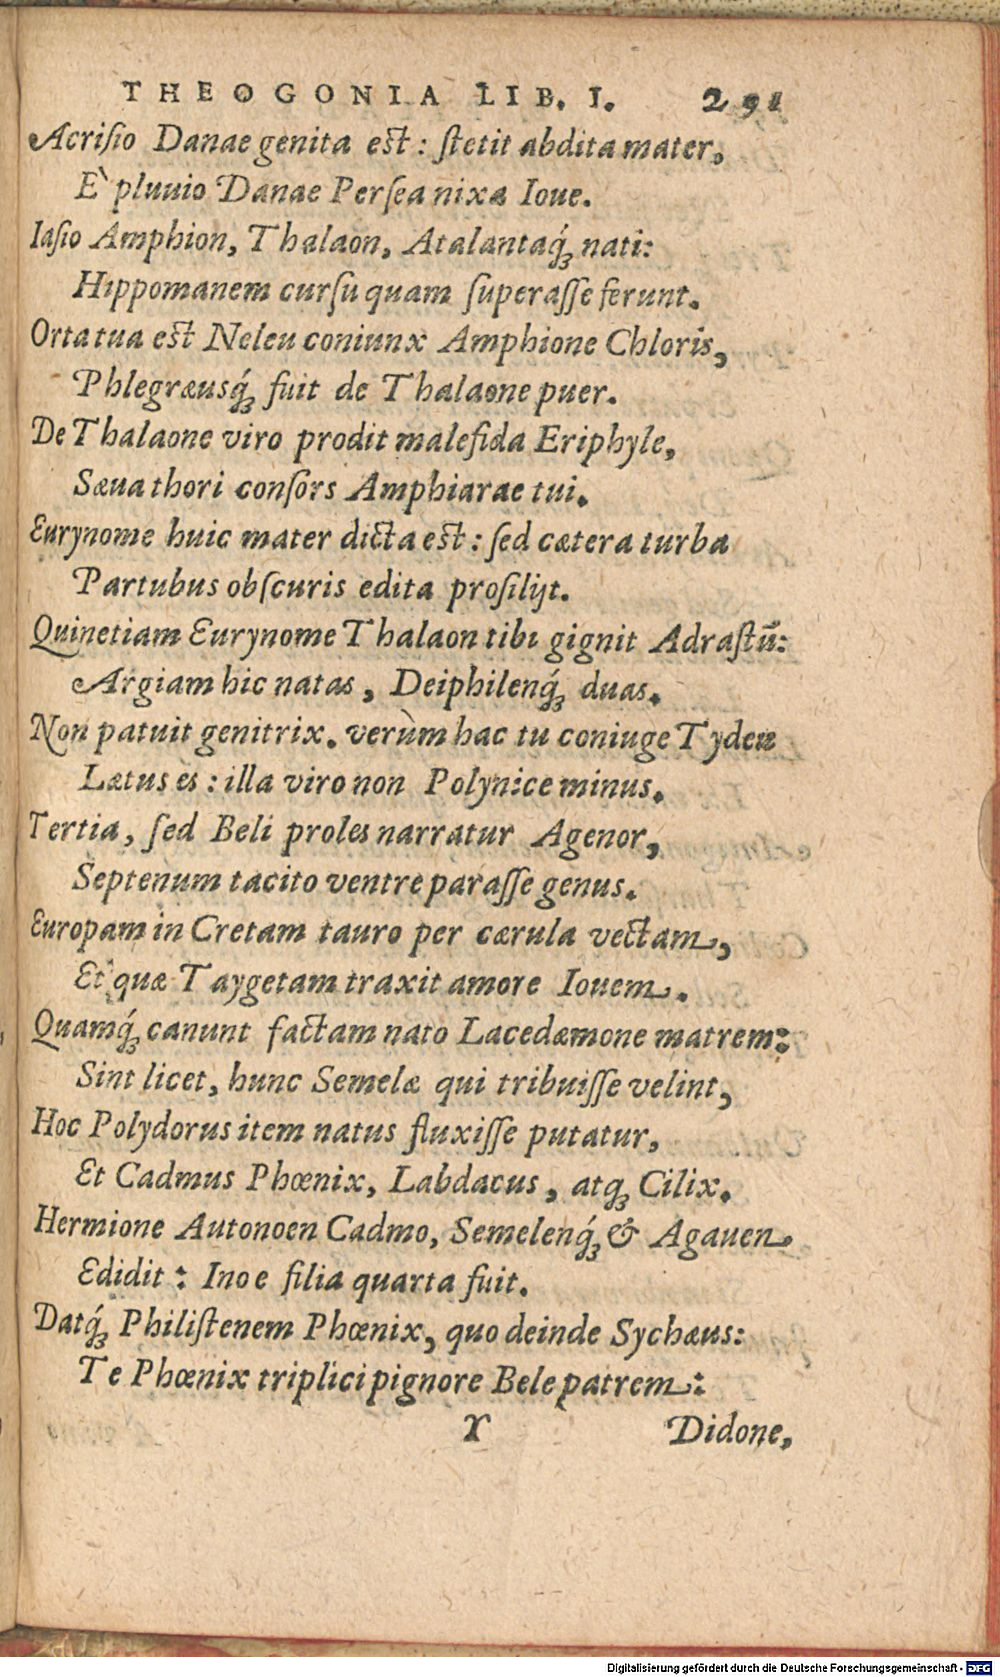 THEOGONIA LIB. I. 291
Acriſio Danae genita eſt: ſtetit abdita mater,
E` pluuio Danae Perſea nixa Ioue.
Iaſio Amphion, Thalaon, Atalantaq́ꝫ nati:
Hippomanem curſu quam ſuperaſſe ferunt.
Orta tua eſt Neleu coniunx Amphione Chloris,
Phlegræusq́ꝫ fuit de Thalaone puer.
De Thalaone viro prodit malefida Eriphyle,
Sæua thori conſors Amphiarae tui.
Eurynome huic mater dicta eſt: ſed cætera turba
Partubus obſcuris edita proſilijt.
Quinetiam Eurynome Thalaon tibi gignit Adraſtū:
Argiam hic natas, Deiphilenq́ꝫ duas.
Non patuit genitrix. verùm hac tu coniuge Tydeu
Lætus es: illa viro non Polynice minus.
Tertia, ſed Beli proles narratur Agenor,
Septenum tacito ventre paraſſe genus.
Europam in Cretam tauro per cærula vectam,
Et quæ Taygetam traxit amore Iouem.
Quamq́ꝫ canunt factam nato Lacedæmone matrem:
Sint licet, hunc Semelæ qui tribuiſſe velint,
Hoc Polydorus item natus fluxiſſe putatur,
Et Cadmus Phœnix, Labdacus, atqꝫ Cilix.
Hermione Autonoen Cadmo, Semelenq́ꝫ & Agauen
Edidit: Inoe filia quarta fuit.
Datq́ꝫ Philiſtenem Phœnix, quo deinde Sychæus:
Te Phœnix triplici pignore Bele patrem:
Y Didone,
Digitalisierung gefördert durch die Deutsche Forschungsgemeinschaft - DFG